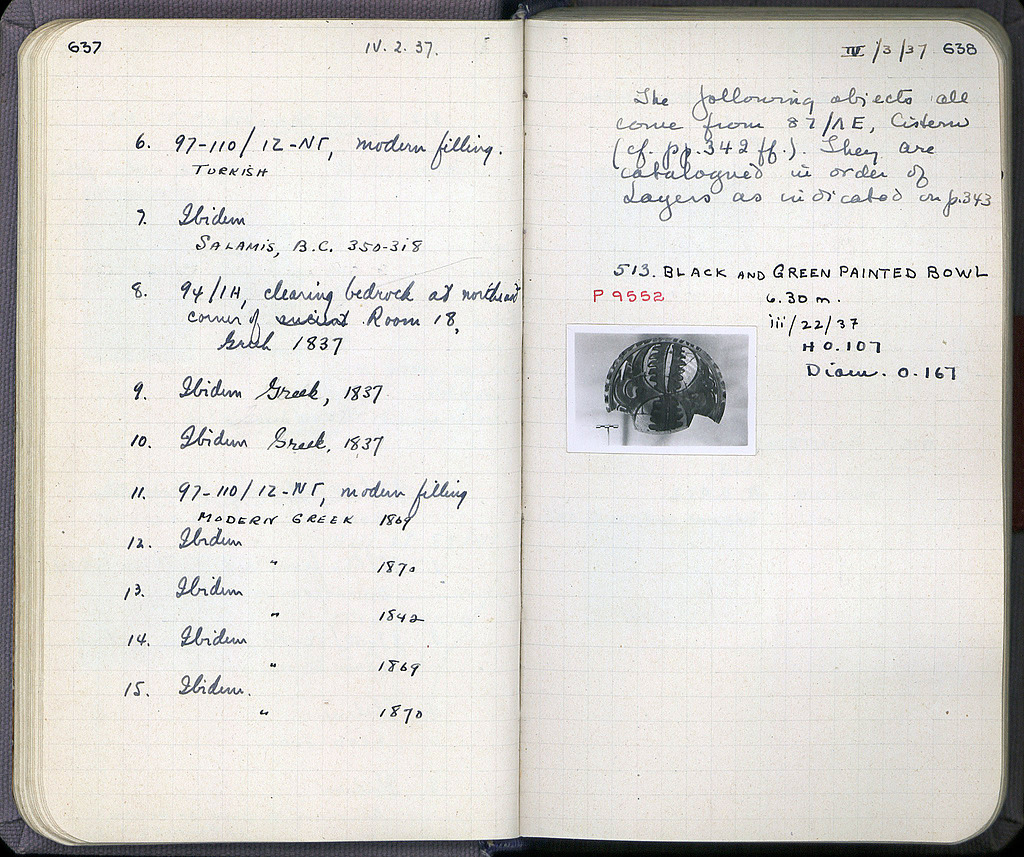 637
IV. 2. 37.
6. 97-110/12-ΝΓ, modern filling.
TURKISH
7. Ibidem
SALAMIS, B.C. 350-318
8. 94/ΙΗ, clearing bedrock at northeast
corner of ancient Room 18,
Greek 1837
9. Ibidem Greek, 1837
10. Ibidem Greek, 1837
11. 97-110/12-ΝΓ, modern filling
MODERN GREEK 1869
12. Ibidem
" 1870
13. Ibidem
" 1842
14. Ibidem
" 1869
15. Ibidem.
" 1870
IV/3/37 638
The following objects all
come from 87/ΛΕ, Cistern
(cf. pp. 342 ff.). They are
catalogued in order of
Layers as indicated on p. 343
513. BLACK AND GREEN PAINTED BOWL
P 9552
6.30 m.
iii/22/37
H 0.107
Diam. 0.167